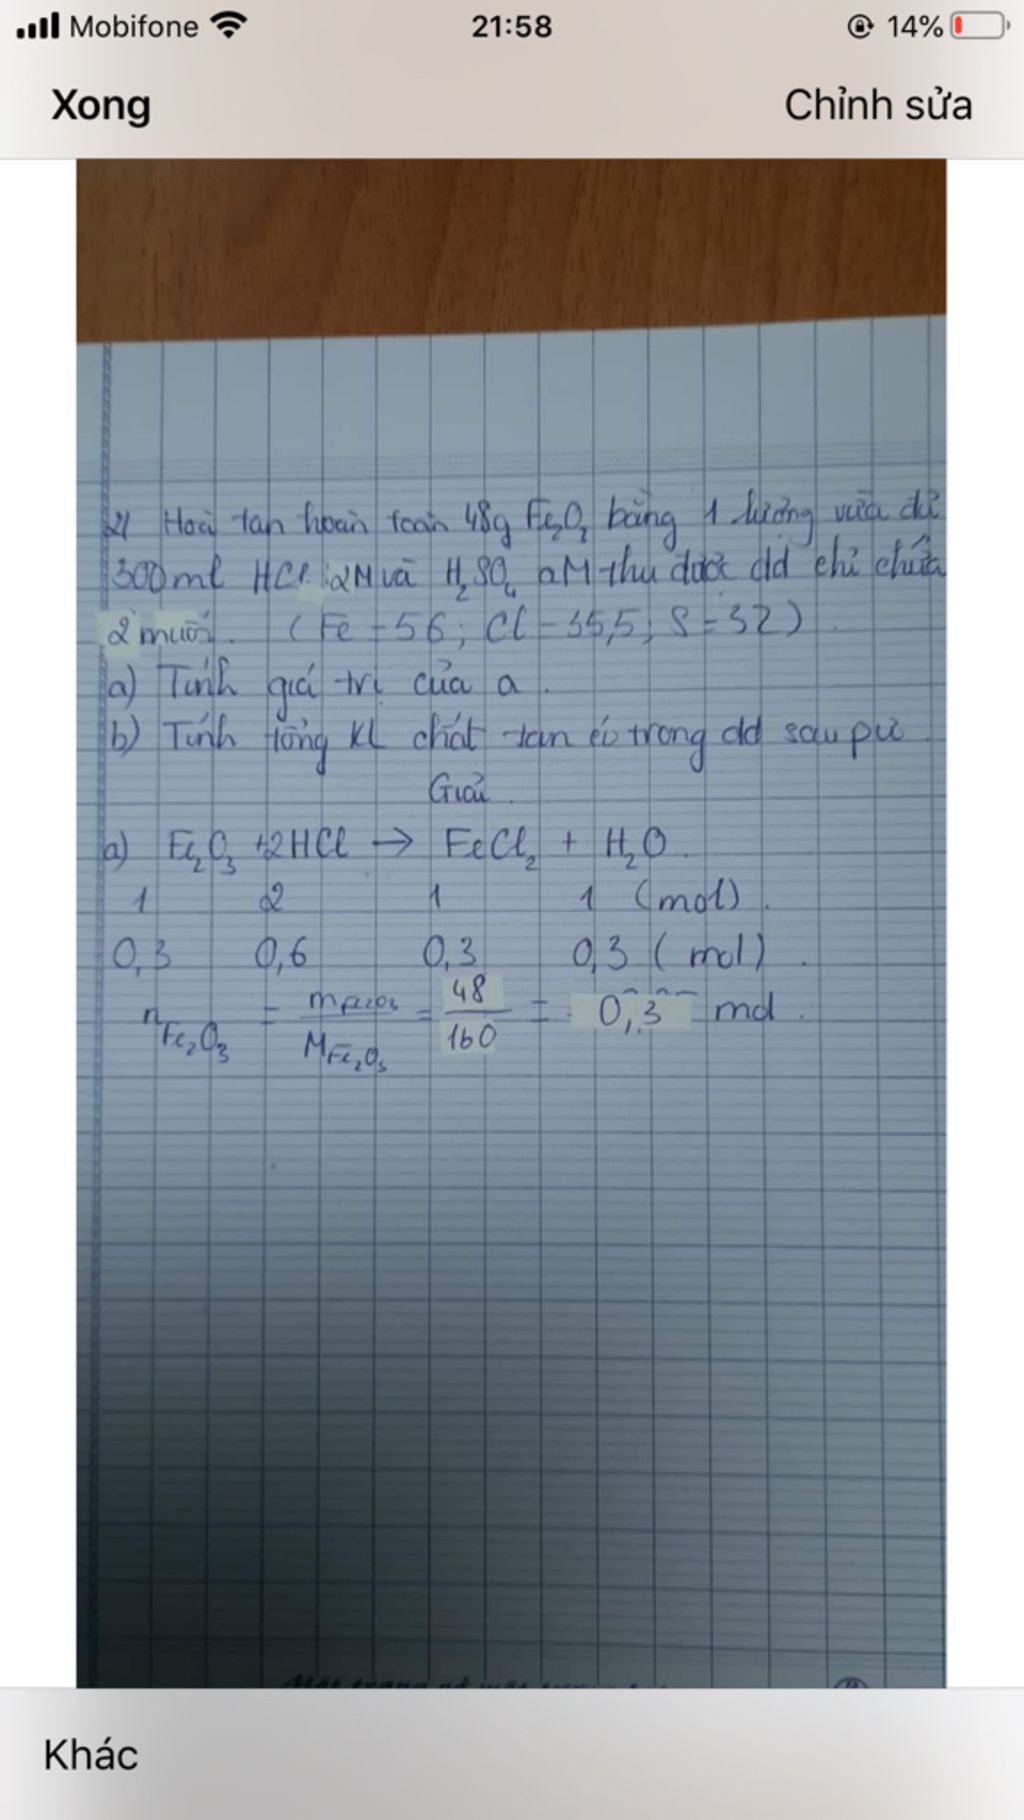 Mobifone 21:58 14%
Xong Chỉnh sửa
2) Hoà tan hoàn toàn 48g Fe₂O₃ bằng 1 lượng vừa đủ
300ml HCl 2M và H₂SO₄ aM thu được dd chỉ chứa
2 muối. (Fe = 56; Cl = 35,5; S = 32)
a) Tính giá trị của a.
b) Tính tổng KL chất tan có trong dd sau pư
Giải
a) Fe₂O₃ + 2HCl → FeCl₂ + H₂O.
1 2 1 1 (mol).
0,3 0,6 0,3 0,3 (mol).
nFe₂O₃ = mFe₂O₃/MFe₂O₃ = 48/160 = 0,3 mol.
Khác